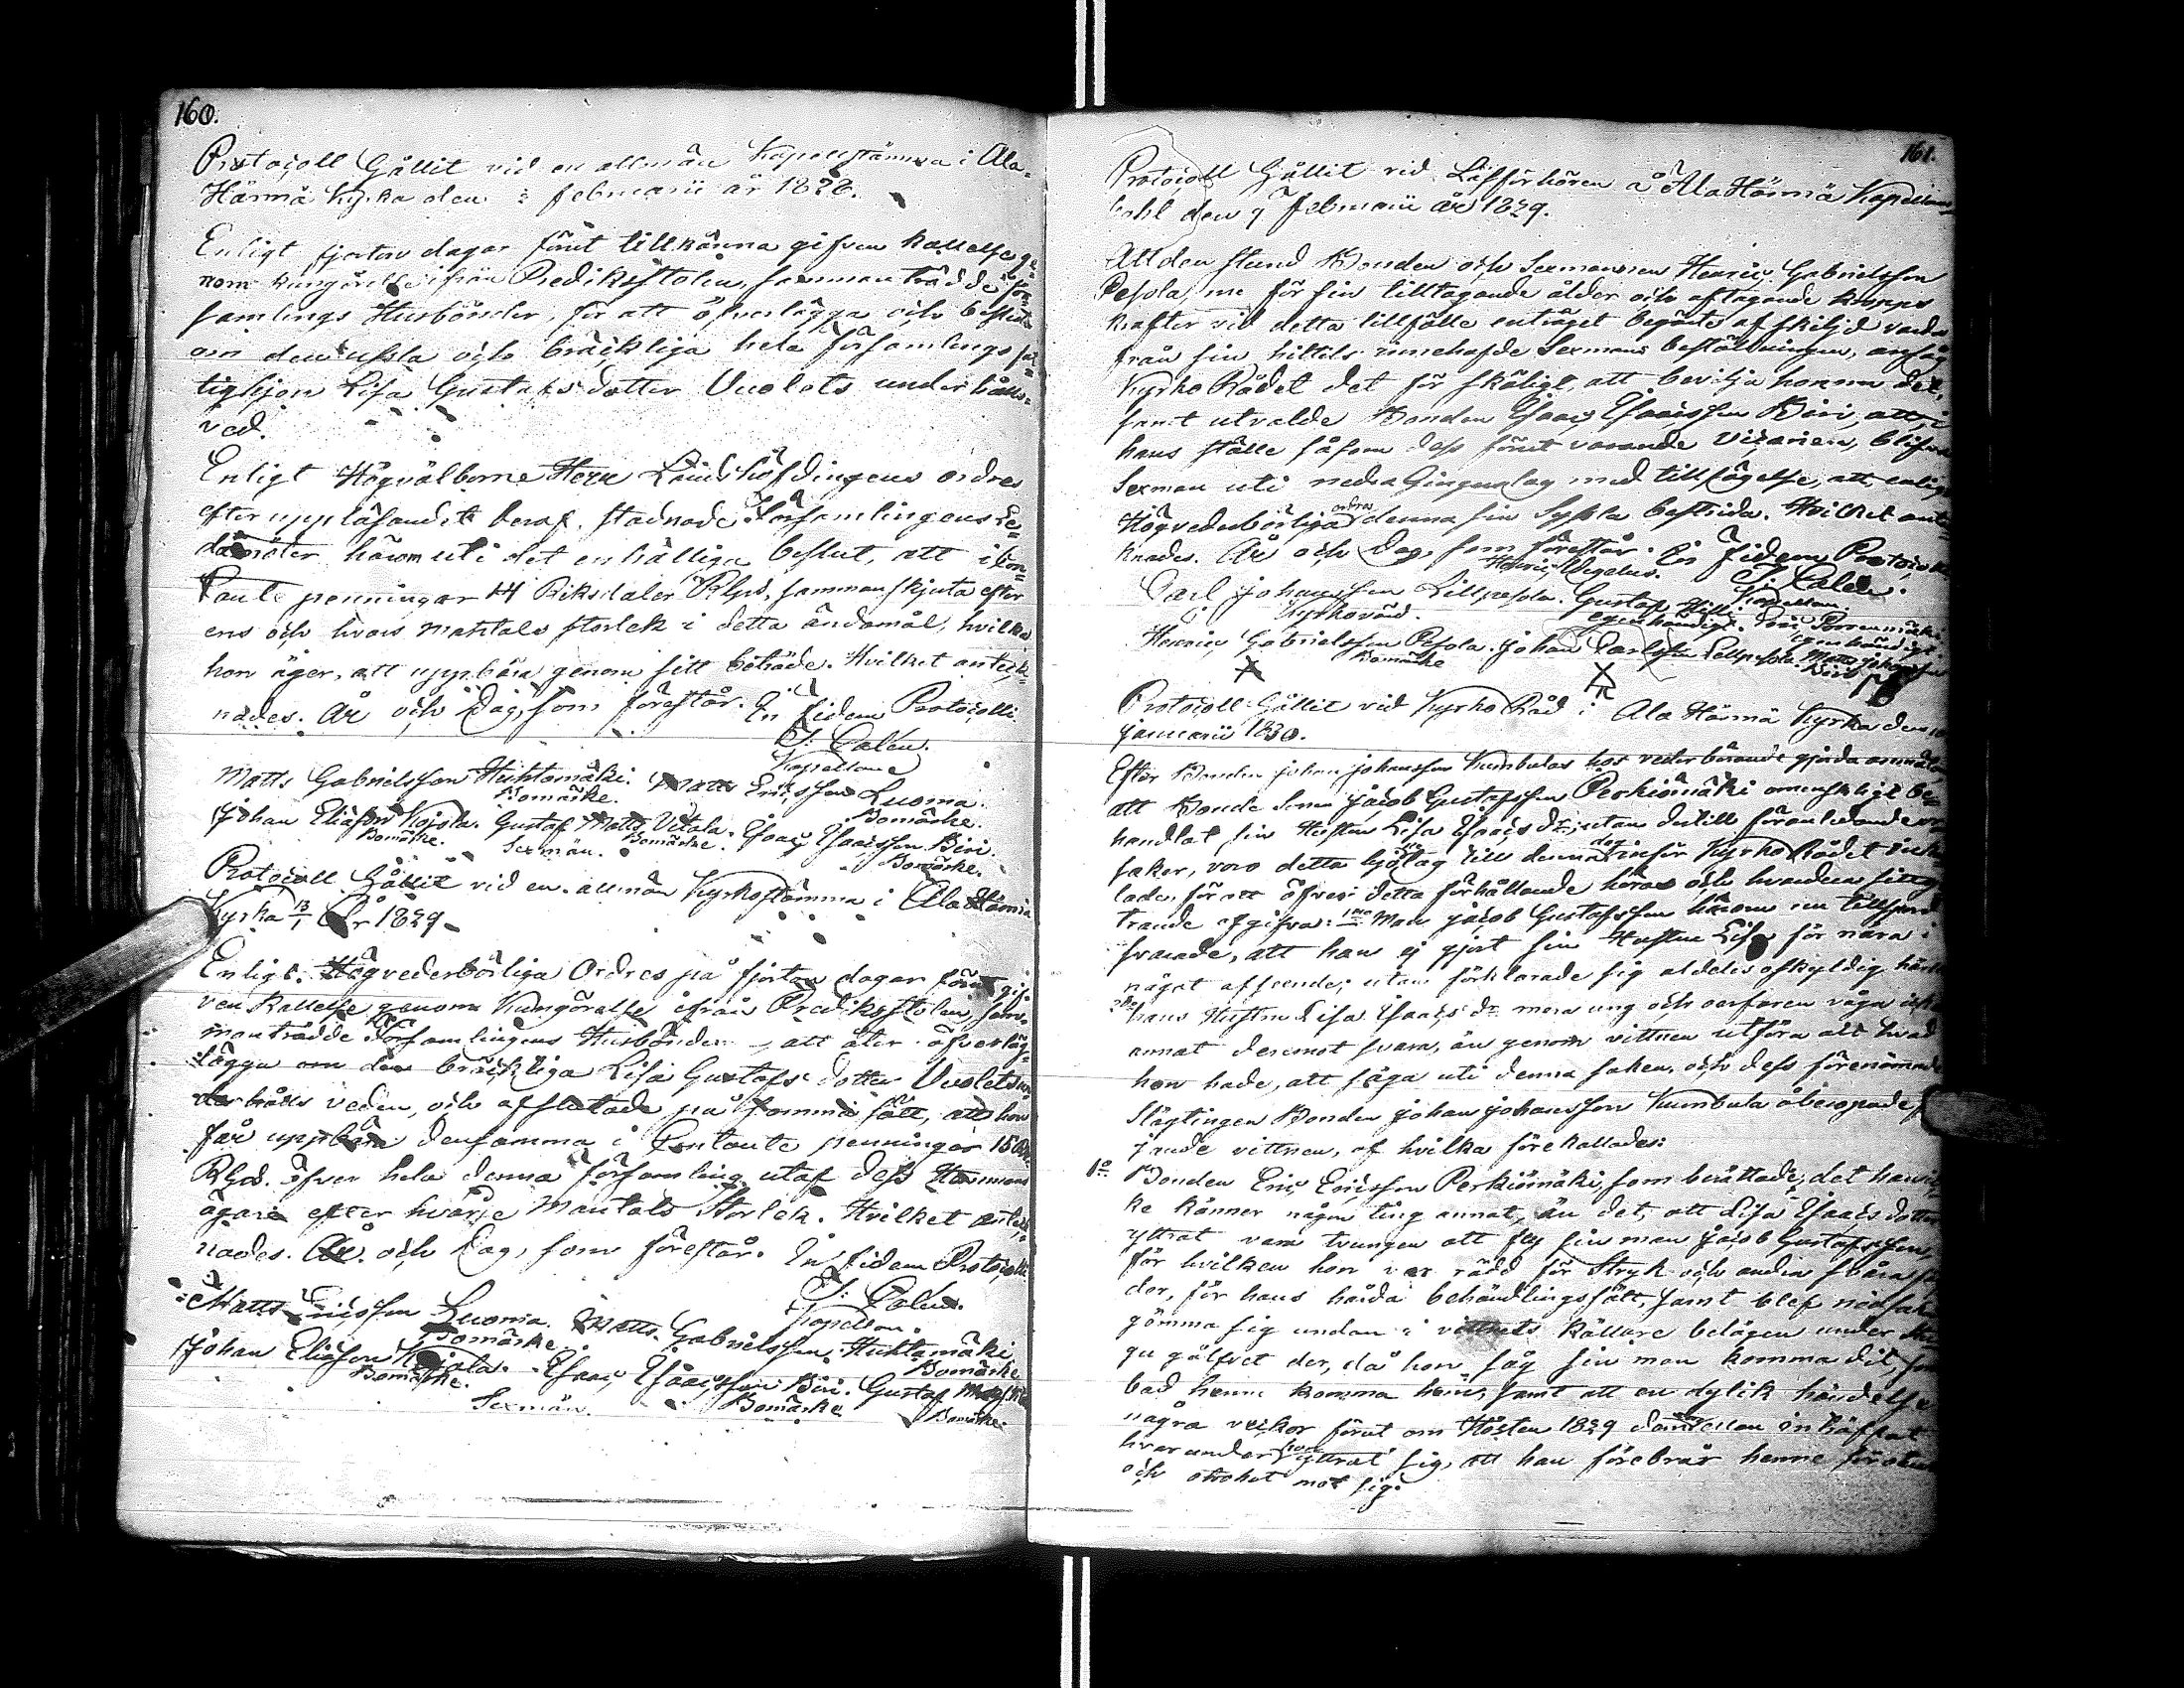 160.
Protocoll hållit vid en allmän Kapellstämma i Ala-
Härmä Kyrka den 3 februarii år 1828.
Enligt fjorton dagar förut tillkänna gifven kallelse ge-
nom kungörelse ifrån Predikstolen, sammanträdde för-
samlings Husbönder, för att öfverlägga och besluta
om den usla och bräckliga hela församlings fat-
tighjon Lisa Gustafs dotter Uuolets underhålls-
ved.
Enligt Högvälborne Herr Landshöfdingens ordres
efter uppläsandet deraf, stadnade Församlingens Le-
damöter härom uti det enhälliga beslut, att i Con-
tante penningar 14 Riksdaler Rgds, sammanskjuta efter
ens och hvars mantals storlek i detta ändamål, hvilka
hon äger, att uppbära genom sitt biträde. Hvilket anteck-
nades. År och Dag, som förestår. In fidem Protocolli
J: Calén.
Kapellan
Matts Gabrielsson Huhtamäki. Matts Ericsson Luoma.
Bomärke. Bomärke.
Johan Eliasson Kojola. Gustaf Matts Vitala. Isaac Isaacsson Biri.
Bomärke. Sexmän. Bomärke. Bomärke.
Protocoll hållit vid en allmän Kyrkostämma i Ala Härmä
Kyrka 13/1 År 1829.
Enligt Högvederbörliga Ordres på fjorton dagar förut gif-
ven kallelse genom Kungörelse ifrån Predikstolen, sam-
manträdde Församlingens Husbönder, att åter öfverläg-
lägga om den bräckliga Lisa Gustafs dotter Uuolets un-
derhålls veden, och afslutade på samma sätt, att hon
får uppbära densamma i Contante penningar 15 Rdr
Rgd. öfver hela denna församling utaf dess Hemmans
ägare efter hvarje Mantals Storlek. Hvilket anteck-
nades. År och Dag, som förestår. In fidem Protocolli
J: Calén.
Kapellan.
Matts Ericsson Luoma. Matts Gabrielsson Huhtamäki
Bomärke. Bomärke
Johan Eliasson Kojola. Isaac Isaacsson Biri. Gustaf Matts
Bomärke. Sexmän. Bomärke Bomärke.
161.
Protocoll hållit vid Läsförhören å Ala Härmä Kapellans
bohl den 9 Februarii år 1829.
Alldenstund Bonden och Sexmannen Henric Gabrielsson
Pesola, nu för sin tilltagande ålder och aftagande kropps
krafter vid detta tillfälle enträget begärte afskiljd varda
från sin hittils innehafde Sexmans beställningen, ansåg
Kyrko Rådet det för skäligt, att bevilja honom det,
samt utvalde Bonden Isaac Isaacsson Biri, att i
hans ställe såsom dess förut varande vicarien, blifva
Sexman uti nedra Gingualag med tillsägelse, att enligt
Högvederbörliga ordres denna sin Syssla bestrida. Hvilket anteck-
knades. År och Dag, som förestår. In Fidem Protocolli
Henric Wegelius. J: Calén.
Carl Johansson Lillpesola. Gustaf Hilli Kapellan.
Kyrkovärd. egenhändigt. Porrenmäki
egenhändigt
Henric Gabrielsson Pesola. Johan Carlsson Lillpesola. Matts Johansson
Bomärke
Protocoll hållit vid Kyrko Råd i Ala Härmä Kyrka den
januarii 1830.
Efter Bonden Johan Johansson Kumbulas hos vederbörande gjorda anmälan
att Bonde Sonen Jacob Gustafsson Perkiömäki omenskligt be-
handlat sin Hustru Lisa Isaacs Dr, utan dertill föranledande or-
saker, voro detta hjonelag till denna dag inför Kyrko Rådet inkal-
lade, för att öfver detta förhållande höras och hvardera sitt
trande afgifva: 1mo Man Jacob Gustafsson härom nu tillspord
svarade, att han ej gjort sin Hustru Lisa för nära i
något afseende; utan förklarade sig aldeles oskyldig härtill
2do hans Hustru Lisa Isaacs dr mera ung och oerfaren våga icke
annat deremot svara, än genom vittnen utföra allt hvad
hon hade, att säga uti denna saken, och dess förenämnde
Slägtingen Bonden Johan Johansson Kumbula åberopade
jande vittnen, af hvilka förekallades:
1o Bonden Eric Ericsson Perkiömäki, som berättade, det han ic-
ke känner någon ting annat, än det, att Lisa Isaacs dotter
yttrat vara tvungen att fly sin man Jacob Gustafsson,
för hvilken hon var rädd för Stryk och andra svåra
der, för hans hårda behandlingssätt, samt blef nödsakad
gömma sig undan i vittnets källare belägen under
gu gålfvet der, då hon såg sin man komma dit, som
bad henne komma hem, samt att en dylik händelse
några veckor förut om Hösten 1829 inträffat
hvarunder hon yttrat sig, att han förebrår henne för otu
och otrohet mot sig.